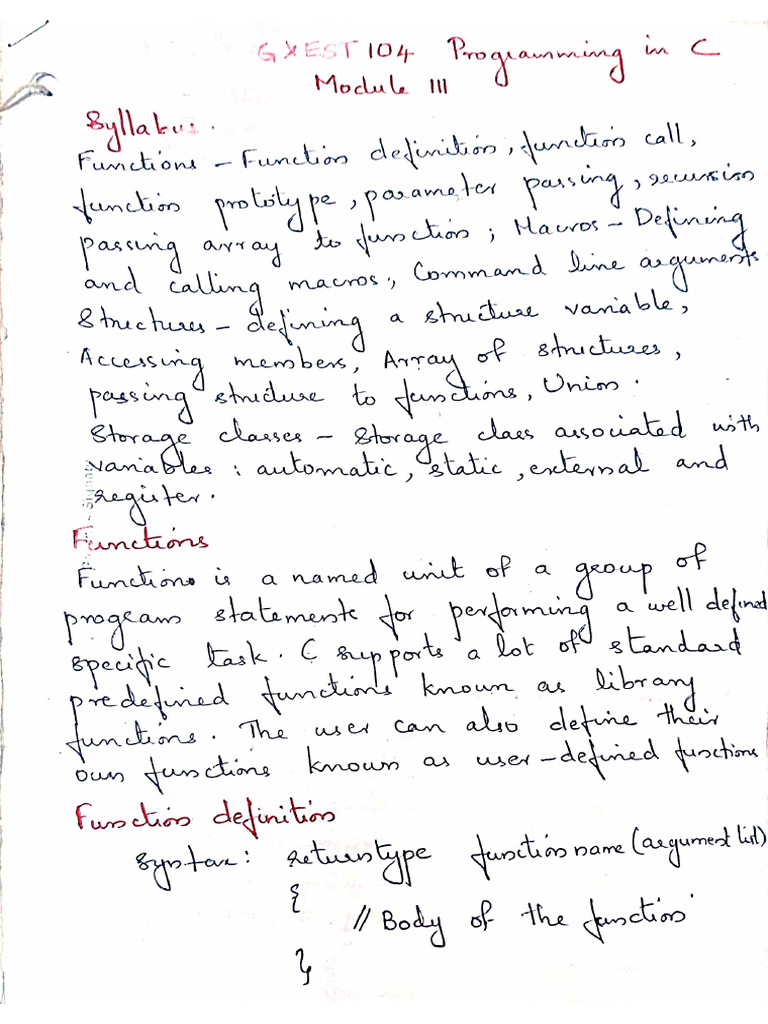 GXEST 104 Programming in C
Module III
Syllabus.
Functions - Function definition, function call,
function prototype, parameter passing, recursion
passing array to function; Macros - Defining
and calling macros, Command line arguments
Structures - defining a structure variable,
Accessing members, Array of structures,
passing structure to functions, Union.
Storage classes - Storage class associated with
variables : automatic, static, external and
register.
Functions
Function is a named unit of a group of
program statements for performing a well defined
specific task. C supports a lot of standard
predefined functions known as library
functions. The user can also define their
own functions known as user-defined functions
Function definition
Syntax: returntype functionname (argument list)
{
// Body of the function
}